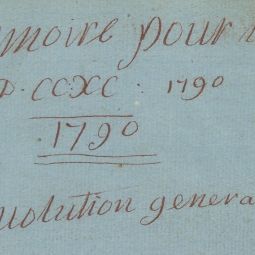 moire pour
D. CCXC : 1790
1790
uolution genera